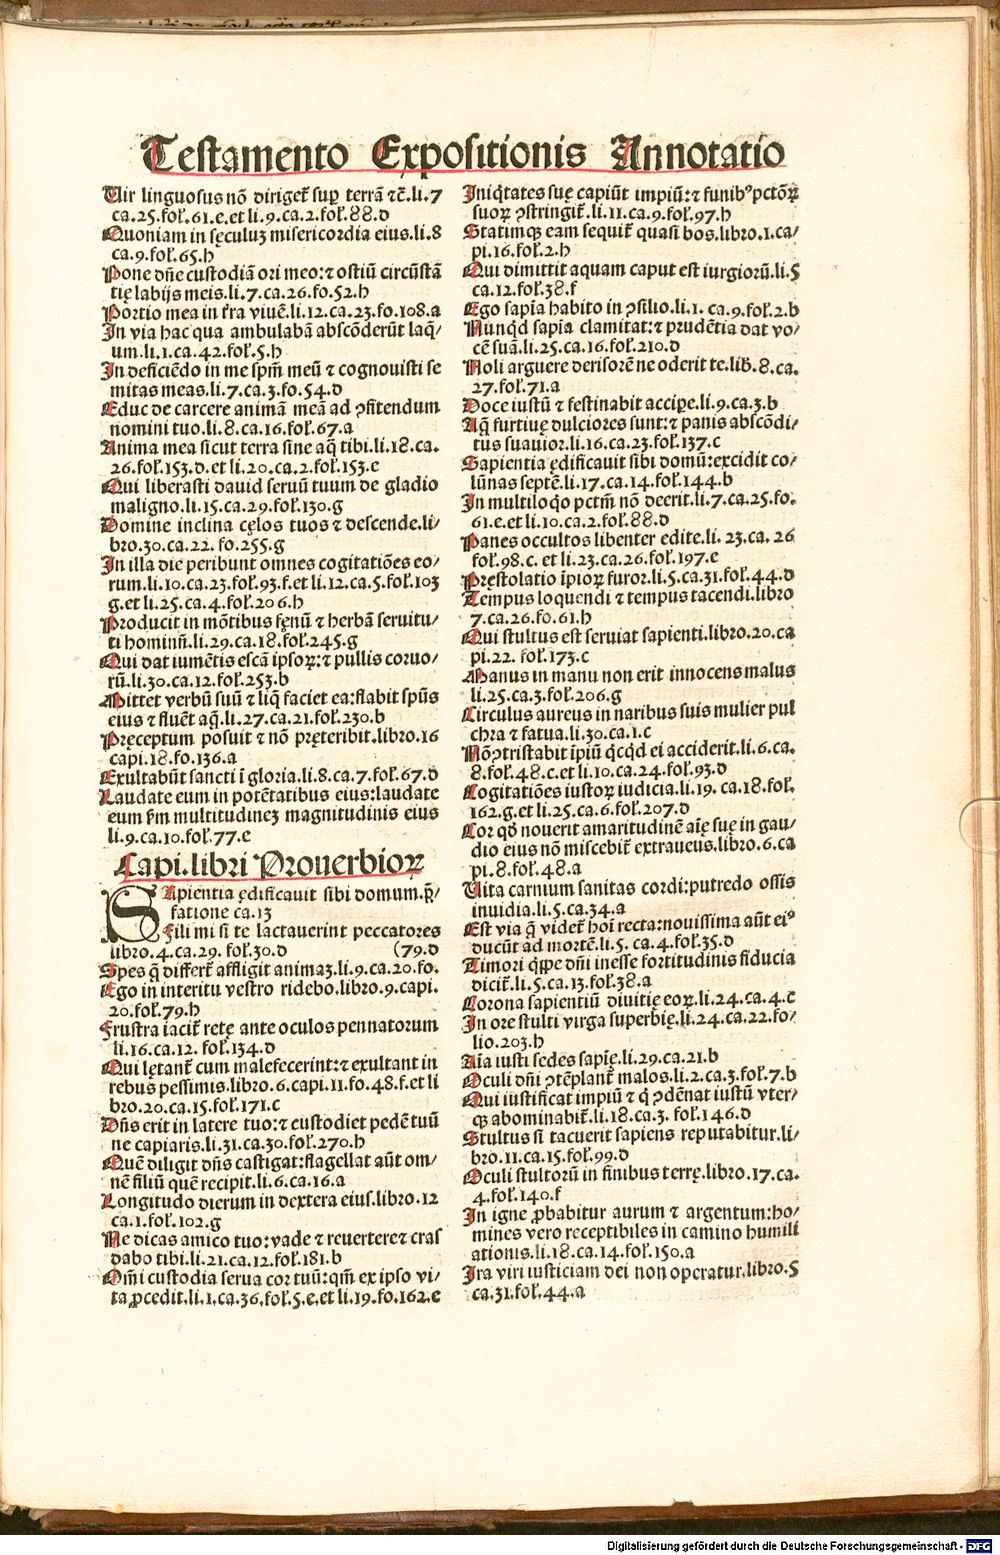 Testamento Expositionis Annotatio
Uir linguosus nõ diriget᷑ sup̱ terrã ⁊c̃.li.7
ca.25.fol̓.61.e.et li.9.ca.2.fol̓.88.d
Quoniam in sęculuꝫ misericordia eius.li.8
ca.9.fol̓.65.h
Pone dñe custodiã ori meo:⁊ ostiũ circũstã
tię labijs meis.li.7.ca.26.fo.52.h
Portio mea in t̃ra viuẽ.li.12.ca.23.fo.108.a
In via hac qua ambulabã abscõderũt laq̃/
um.li.1.ca.42.fol̓.5.h
In deficiẽdo in me spm̃ meũ ⁊ cognouisti se
mitas meas.li.7.ca.3.fo.54.d
Educ de carcere animã meã ad ꝯfitendum
nomini tuo.li.8.ca.16.fol̓.67.a
Anima mea sicut terra sine aq̃ tibi.li.18.ca.
26.fol̓.153.d.et li.20.ca.2.fol̓.153.e
Qui liberasti dauid seruũ tuum de gladio
maligno.li.15.ca.29.fol̓.130.g
Domine inclina cęlos tuos ⁊ descende.li/
bro.30.ca.22. fo.255.g
In illa die peribunt omnes cogitatiões eo/
rum.li.10.ca.23.fol̓.93.f.et li.12.ca.5.fol̓.103
g.et li.25.ca.4.fol̓.206.h
Producit in mõtibus fęnũ ⁊ herbã seruitu/
ti hominũ.li.29.ca.18.fol̓.245.g
Qui dat iumẽtis escã ipsoꝝ:⁊ pullis coruo/
rũ.li.30.ca.12.fol̓.253.b
Mittet verbũ suũ ⁊ liq̃ faciet ea:flabit spũs
eius ⁊ fluẽt aq̃.li.27.ca.21.fol̓.230.b
Pręceptum posuit ⁊ nõ pręteribit.libro.16
capi.18.fo.136.a
Exultabũt sancti ĩ gloria.li.8.ca.7.fol̓.67.d
Laudate eum in potẽtatibus eius:laudate
eum s̃m multitudineꝫ magnitudinis eius
li.9.ca.10.fol̓.77.e
Capi.libri Prouerbioꝝ
SApientia ędificauit sibi domum.p̃/
fatione ca.13
Fili mi si te lactauerint peccatores
libro.4.ca.29. fol̓.30.d (79.d
Spes q̃ differt᷑ affligit animaꝫ.li.9.ca.20.fo.
Ego in interitu vestro ridebo.libro.9.capi.
20.fol̓.79.h
Frustra iacit᷑ retę ante oculos pennatorum
li.16.ca.12. fol̓.134.d
Qui lętant᷑ cum malefecerint:⁊ exultant in
rebus pessimis.libro.6.capi.11.fo.48.f.et li
bro.20.ca.15.fol̓.171.c
Dñs erit in latere tuo:⁊ custodiet pedẽ tuũ
ne capiaris.li.31.ca.30.fol̓.270.h
Quẽ diligit dñs castigat:flagellat aũt om/
nẽ filiũ quẽ recipit.li.6.ca.16.a
Longitudo dierum in dextera eius.libro.12
ca.1.fol̓.102.g
Ne dicas amico tuo:vade ⁊ reuertere⁊ cras
dabo tibi.li.21.ca.12.fol̓.181.b
Om̃i custodia serua cor tuũ:qm̃ ex ipso vi/
ta ꝓcedit.li.1.ca.36.fol̓.5.e.et li.19.fo.162.e
Iniq̃tates suę capiũt impiũ:⁊ funibꝰ pctõꝝ
suoꝝ ꝯstringit᷑.li.11.ca.9.fol̓.97.h
Statimqꝫ eam sequit᷑ quasi bos.libro.1.ca/
pi.16.fol̓.2.h
Qui dimittit aquam caput est iurgiorũ.li.5
ca.12.fol̓.38.f
Ego sapĩa habito in ꝯsilio.li.1. ca.9.fol̓.2.b
Nunq̃d sapĩa clamitat:⁊ prudẽtia dat vo/
cẽ suã.li.25.ca.16.fol̓.210.d
Noli arguere derisorẽ ne oderit te.lib̓.8.ca.
27.fol̓.71.a
Doce iustũ ⁊ festinabit accip̱e.li.9.ca.3.b
Aq̃ furtiuę dulciores sunt:⁊ panis abscõdi/
tus suauior.li.16.ca.23.fol̓.137.c
Sapientia ędificauit sibi domũ:excidit co/
lũnas septẽ.li.17.ca.14.fol̓.144.b
In multiloq̃o pctm̃ nõ deerit.li.7.ca.25.fo.
61.e.et li.10.ca.2.fol̓.88.d
Panes occultos libenter edite.li. 23.ca. 26
fol̓.98.c. et li.23.ca.26.fol̓.197.e
Pręstolatio ĩpioꝝ furor.li.5.ca.31.fol̓.44.d
Tempus loquendi ⁊ tempus tacendi.libro
7.ca.26.fo.61.h
Qui stultus est seruiat sapienti.libro.20.ca
pi.22. fol̓.173.c
Manus in manu non erit innocens malus
li.25.ca.3.fol̓.206.g
Circulus aureus in naribus suis mulier pul
chra ⁊ fatua.li.30.ca.1.c
Nõ ꝯtristabit ĩpiũ q̃cq̃d ei acciderit.li.6.ca.
8.fol̓.48.c.et li.10.ca.24.fol̓.93.d
Cogitatiões iustoꝝ iudicia.li.19. ca.18.fol̓.
162.g.et li.25.ca.6.fol̓.207.d
Cor qd̓ nouerit amaritudinẽ aĩę suę in gau/
dio eius nõ miscebit᷑ extraueus.libro.6.ca
pi.8.fol̓.48.a
Uita carnium sanitas cordi:putredo ossis
inuidia.li.5.ca.34.a
Est via q̃ videt᷑ hoĩ recta:nouissima aũt eiꝰ
ducũt ad mortẽ.li.5. ca.4.fol̓.35.d
Timori q̃ppe dñi inesse fortitudinis fiducia
dicit᷑.li.5.ca.13.fol̓.38.a
Corona sapientiũ diuitię eoꝝ.li.24.ca.4.e
In ore stulti virga superbię.li.24.ca.22.fo/
lio.203.h
Aĩa iusti sedes sapĩę.li.29.ca.21.b
Oculi dñi ꝯtẽplant᷑ malos.li.2.ca.3.fol̓.7.b
Qui iustificat impiũ ⁊ q̃ ꝯdẽnat iustũ vter/
qꝫ abominabit᷑.li.18.ca.3. fol̓.146.d
Stultus si tacuerit sapiens reputabitur.li/
bro.11.ca.15.fol̓.99.d
Oculi stultorũ in finibus terrę.libro.17.ca.
4.fol̓.140.f
In igne ꝓbabitur aurum ⁊ argentum:ho/
mines vero receptibiles in camino humili
ationis.li.18.ca.14.fol̓.150.a
Ira viri iusticiam dei non operatur.libro.5
ca.31.fol̓.44.a
Digitalisierung gefördert durch die Deutsche Forschungsgemeinschaft - DFG